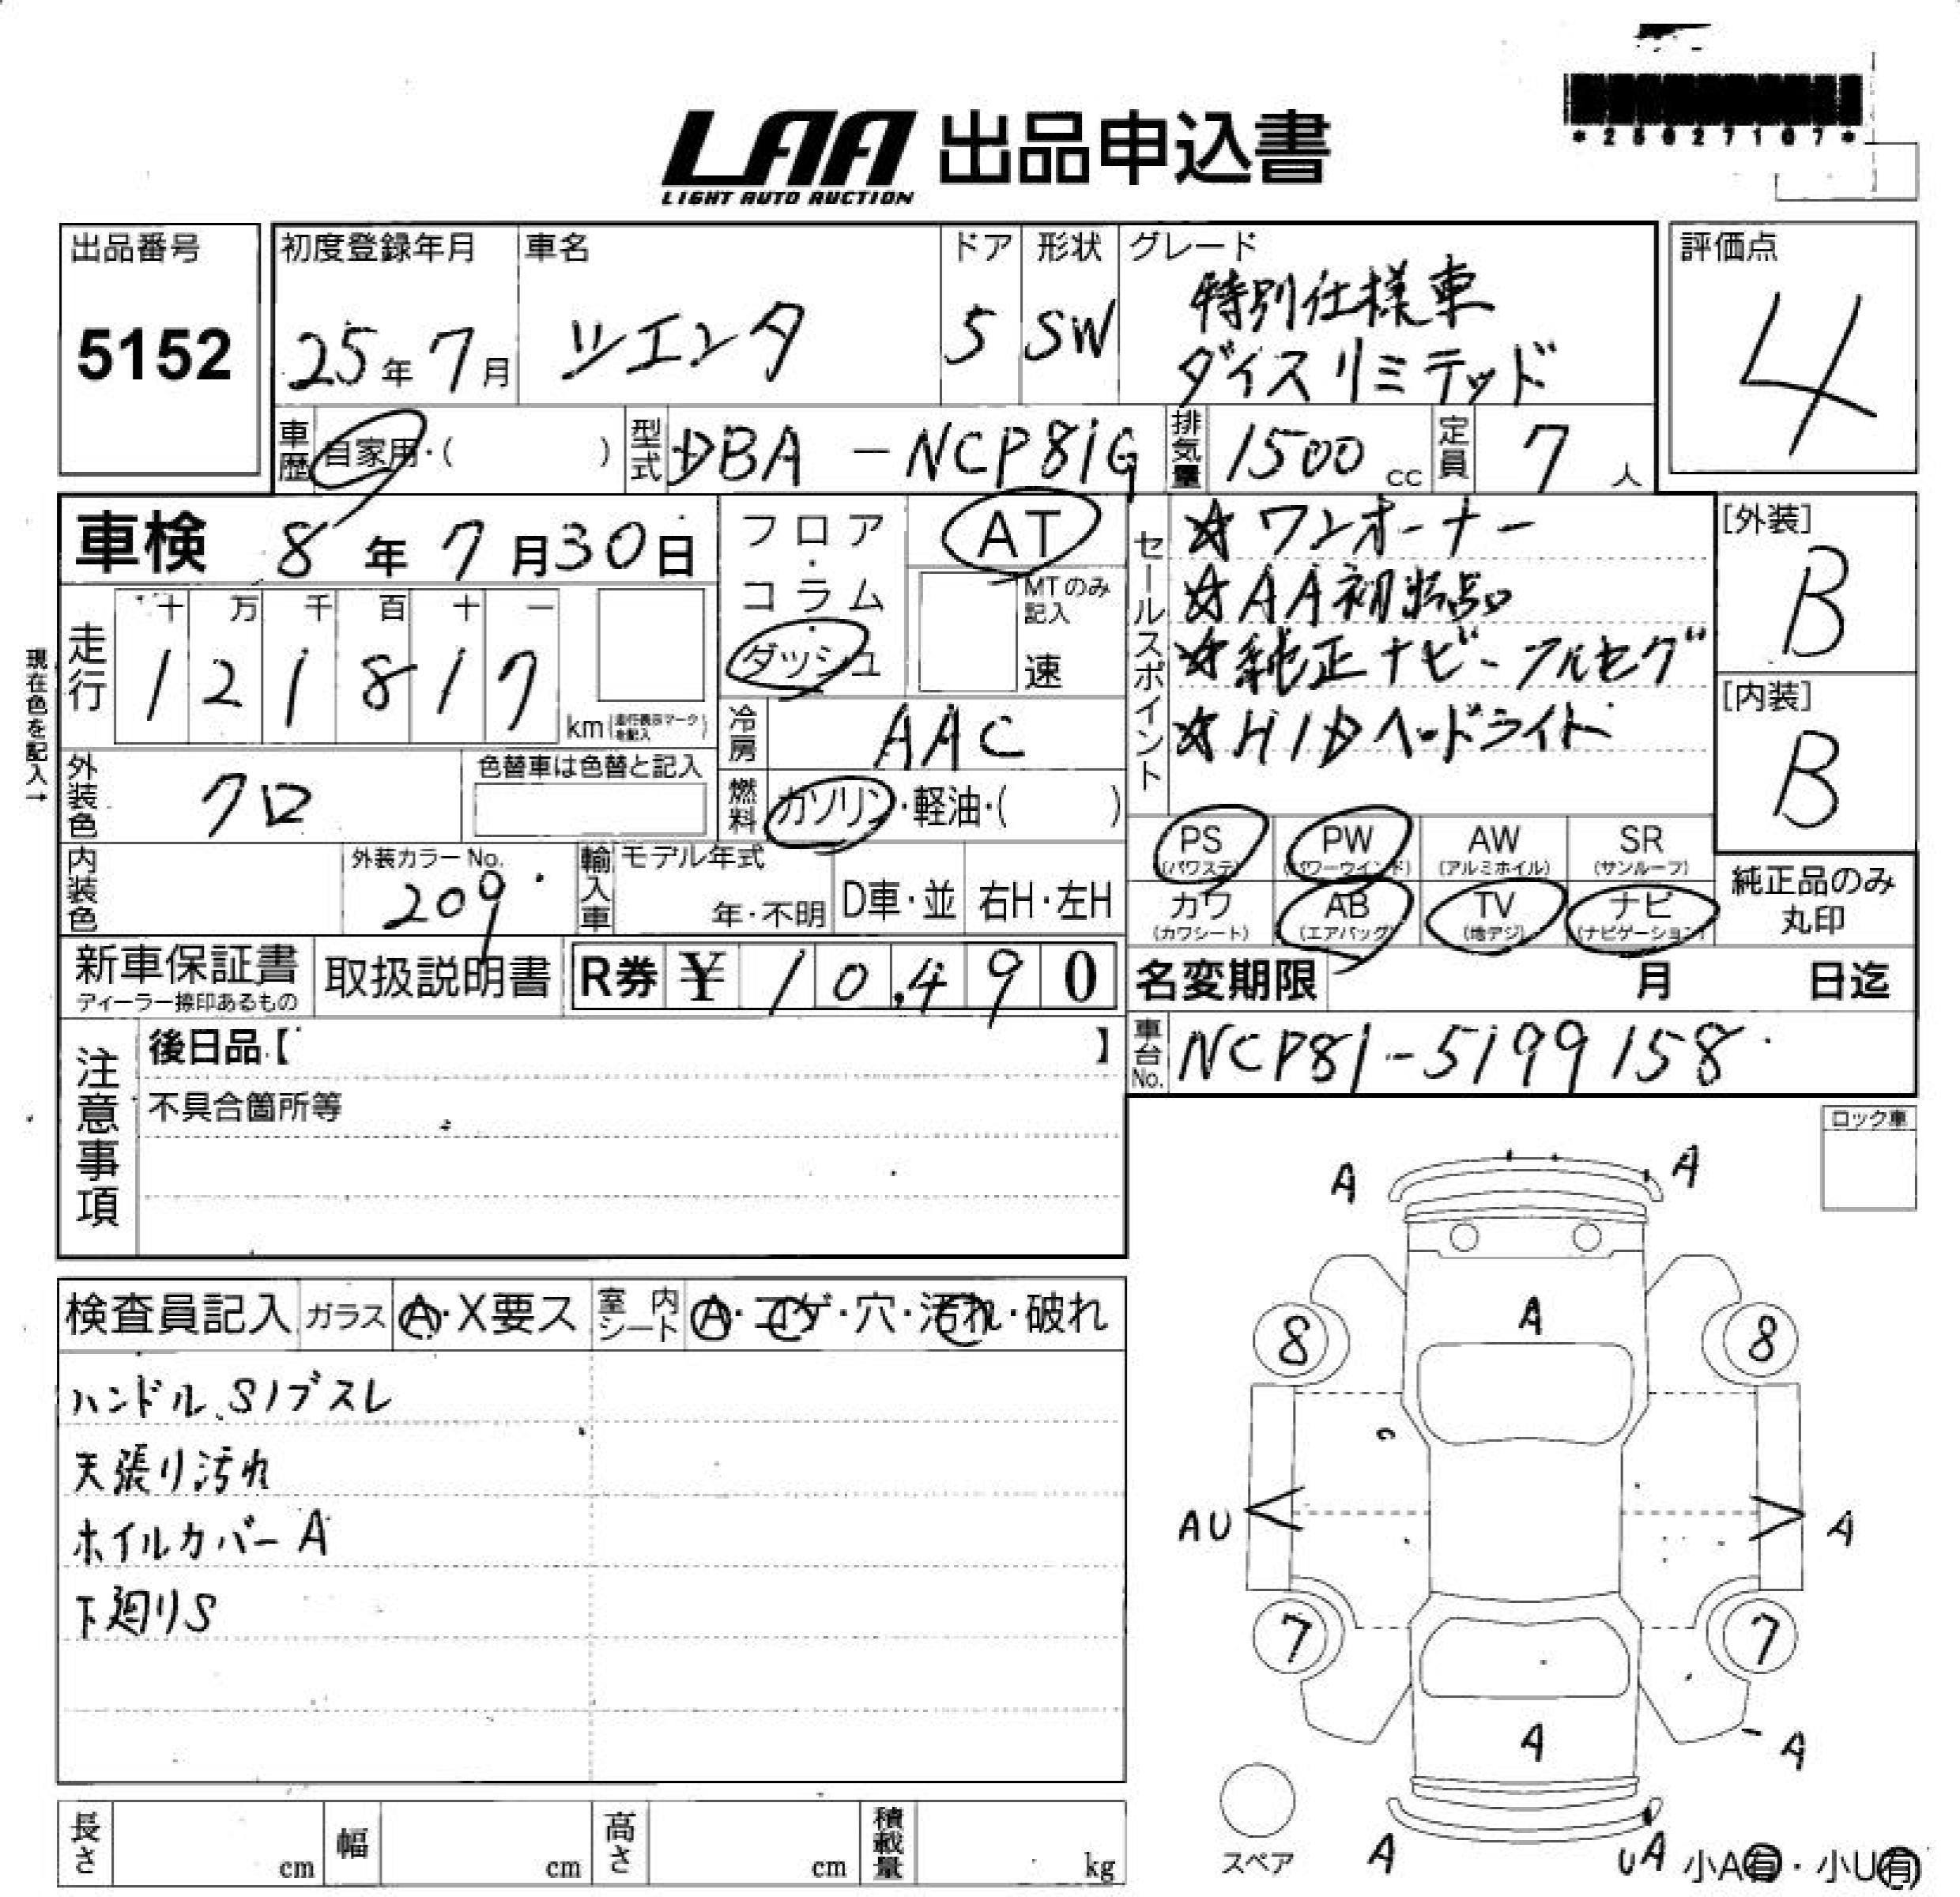 *25027107*
LAA 出品申込書
LIGHT AUTO AUCTION
出品番号
5152
初度登録年月
25年7月
車名
シエンタ
ドア
5
形状
SW
グレード
特別仕様車
ダイスリミテッド
評価点
4
車歴 自家用・( )
型式 DBA-NCP81G
排気量 1500cc
定員 7人
車検 8年7月30日
フロア・コラム・ダッシュ
AT
MTのみ記入
速
セールスポイント
☆ワンオーナー
☆AA初出品
☆純正ナビ-フルセグ
☆HIDヘッドライト
[外装]
B
[内装]
B
現在色を記入→
走行
十 万 千 百 十 一
1 2 1 8 1 7
km(走行表示マークを記入)
冷房 AAC
燃料 ガソリン・軽油・( )
外装色 クロ
色替車は色替と記入
内装色
外装カラーNo.
209
輸入車
モデル年式
年・不明
D車・並
右H・左H
PS (パワステ)
PW (パワーウインド)
AW (アルミホイル)
SR (サンルーフ)
カワ (カワシート)
AB (エアバッグ)
TV (地デジ)
ナビ (ナビゲーション)
純正品のみ
丸印
新車保証書
ディーラー捺印あるもの
取扱説明書
R券 ¥10,490
名変期限 月 日迄
車台No. NCP81-5199158
注意事項
後日品【 】
不具合箇所等
ロック車
検査員記入 ガラス A・X要ス 室内シート A・コゲ・穴・汚れ・破れ
ハンドルSノブスレ
天張り汚れ
ホイルカバーA
下廻りS
A A
A
8 8
C
AU A
7 7
A A
スペア
A UA
小A有・小U有
長さ cm
幅 cm
高さ cm
積載量 kg